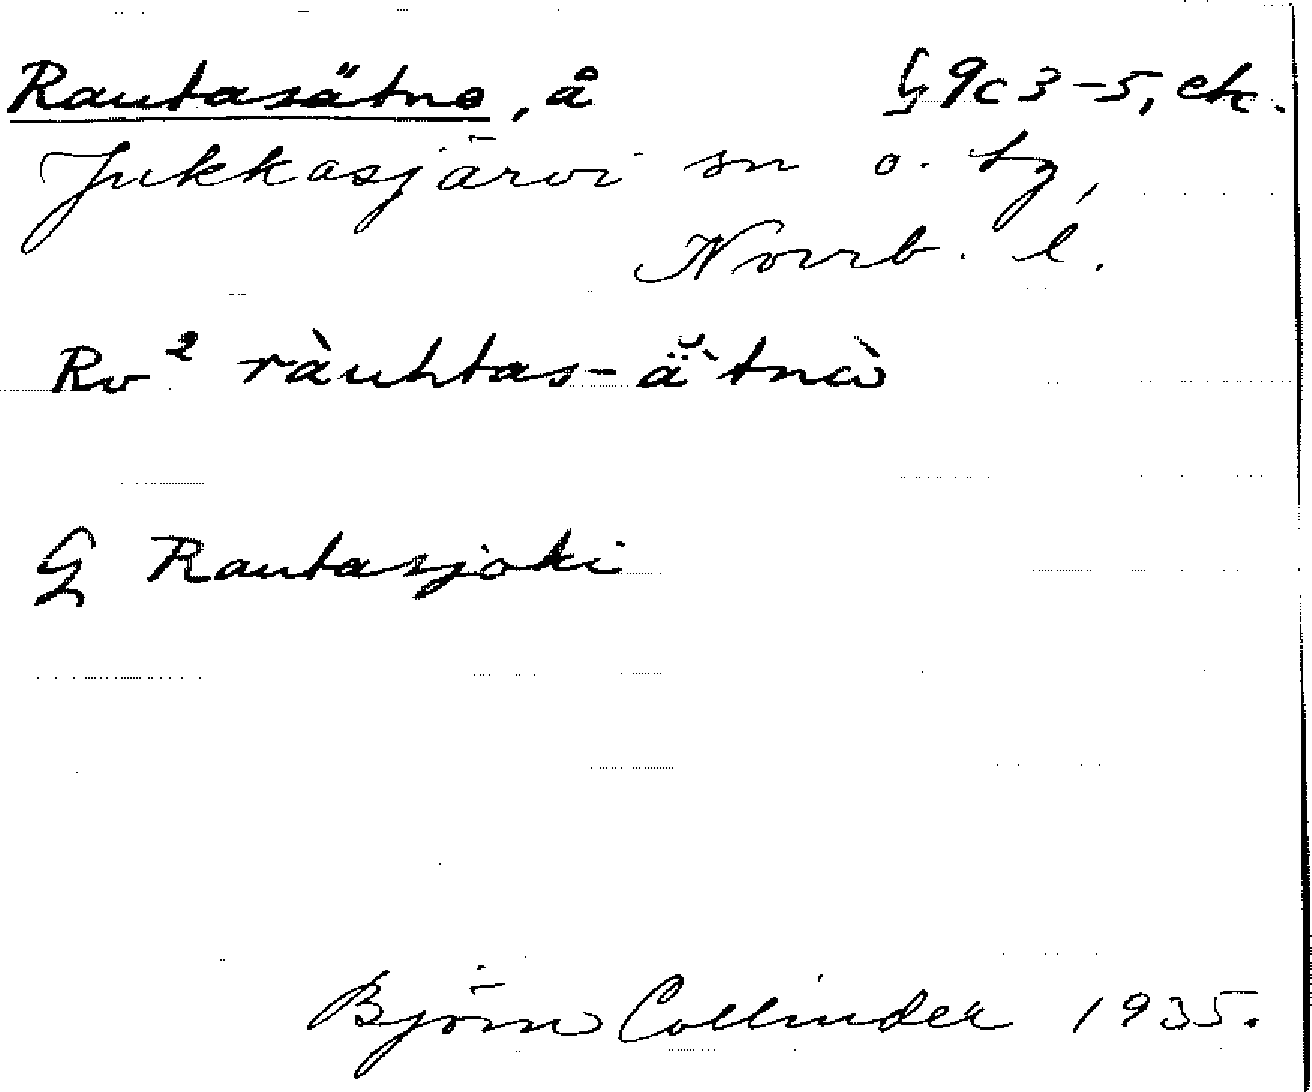 Rautasätno, å § 9c 3-5, ek.
Jukkasjärvi sn o. tg,
Norrb. l.
Rv² ràuhtas-ä̆ˋtnὼ
G Rautasjoki
Björn Collinder 1935.